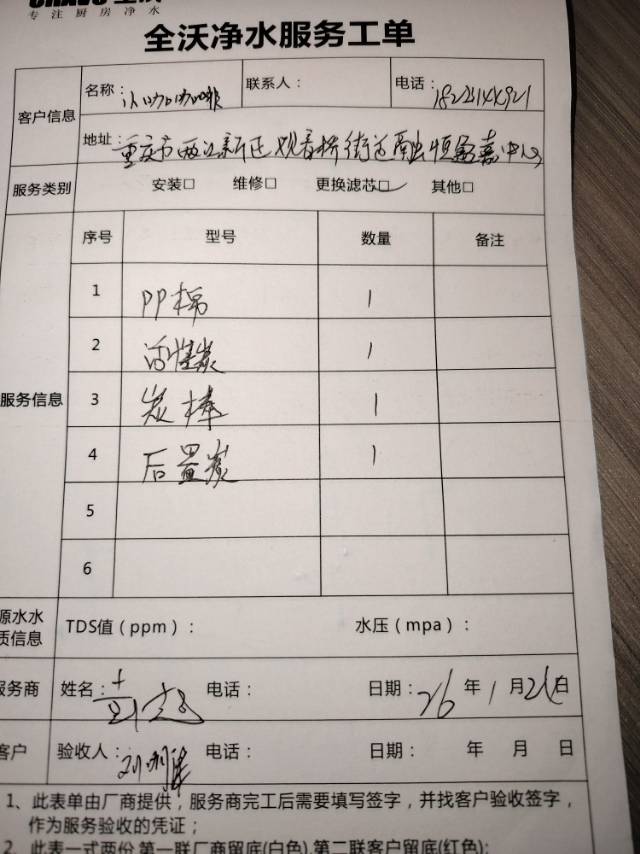 专注厨房净水
全沃净水服务工单
客户信息
名称: 咖啡 联系人: 电话:
地址: 重庆市两江新区观音桥街道 中心
服务类别 安装□ 维修□ 更换滤芯□ 其他□
序号 型号 数量 备注
服务信息
1 PP棉 1
2 活性炭 1
3 炭棒 1
4 后置炭 1
5
6
源水水
质信息
TDS值(ppm): 水压(mpa):
服务商 姓名: 电话: 日期: 26年1月 日
客户 验收人: 电话: 日期: 年 月 日
1、此表单由厂商提供,服务商完工后需要填写签字,并找客户验收签字,
作为服务验收的凭证;
2、此表一式两份,第一联厂商留底(白色),第二联客户留底(红色);